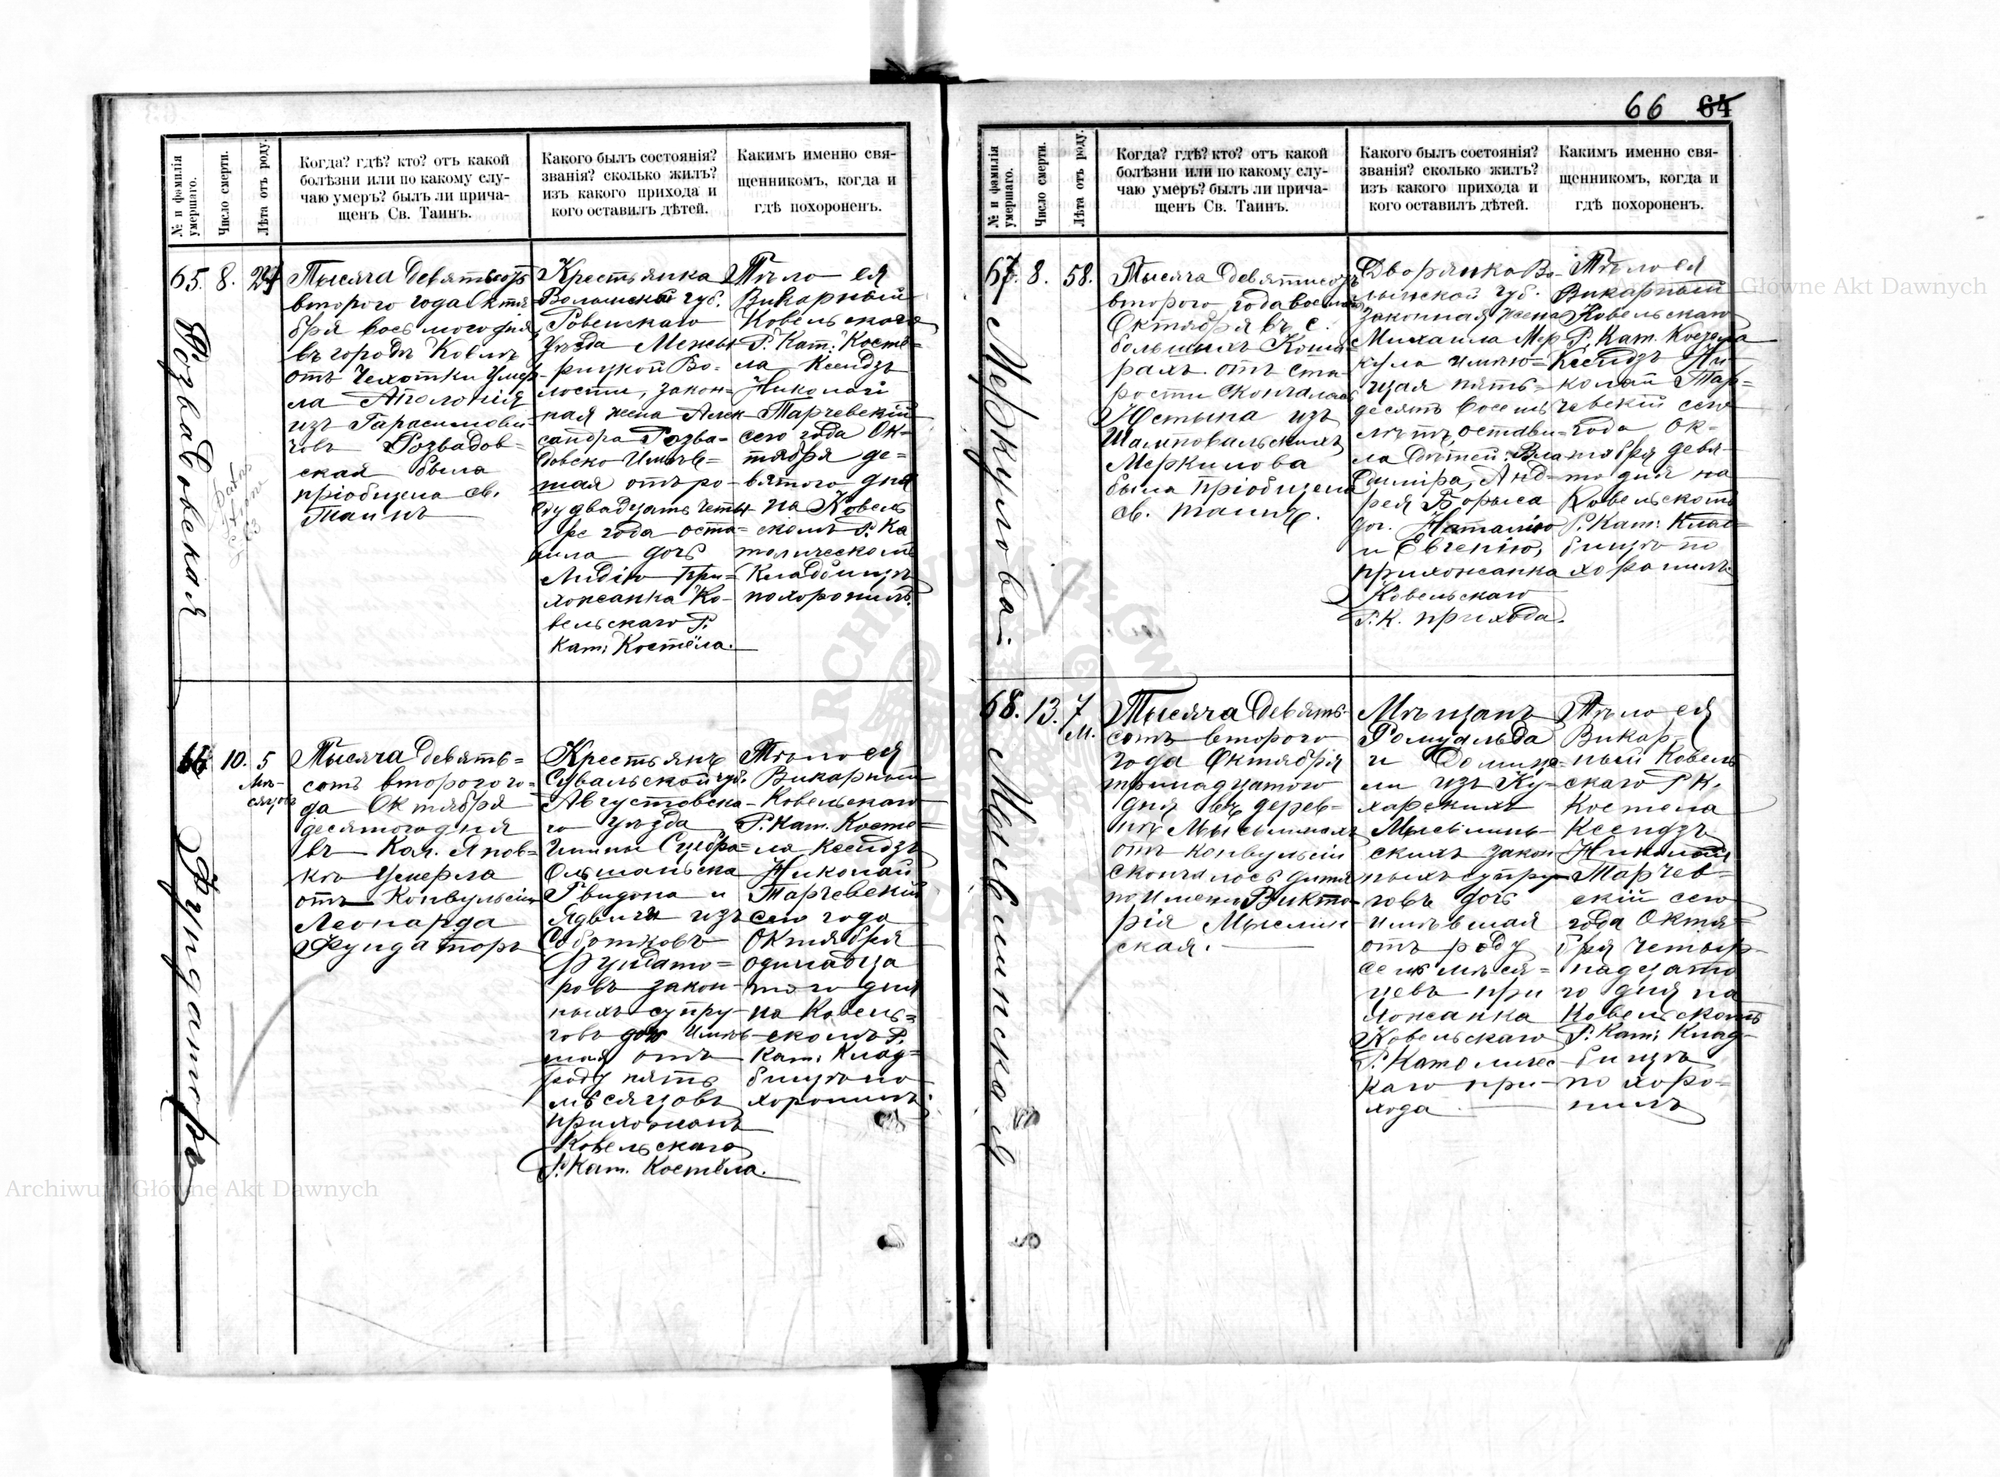 66 64
№ и фамилія умершаго.
Число смерти.
Лѣта отъ роду.
Когда? гдѣ? кто? отъ какой
болѣзни или по какому слу-
чаю умеръ? былъ ли прича-
щенъ Св. Таинъ.
Какого былъ состоянія?
званія? сколько жилъ?
изъ какого прихода и
кого оставилъ дѣтей.
Какимъ именно свя-
щенникомъ, когда и
гдѣ похороненъ.
65. 8. 24
Розвадовская
Тысяча девятьсотъ
второго года Октя
бря восьмого дня
въ городѣ Ковлѣ
отъ чехотки умер-
ла Аполонія
изъ Гарасимови
човъ Розвадов-
ская была
пріобщена св.
Таинъ
Крестьянка
Волынской губ.
Ровенскаго
уѣзда Межи
рицкой Во-
лости, закон-
ная жена Алек
сандра Розва-
довско имѣв-
шая отъ ро-
ду двадцать четы
ре года оста-
вила дочь
Лидію при-
хожанка Ко-
вельскаго Р.
Кат. Костёла.
Тѣло ея
Викарный
Ковельскаго
Р. Кат. Косте-
ла Ксендзъ
Николай
Тарчевскій
сего года Ок-
тября де-
вятого дня
на Ковель
скомъ Р. Ка
толическомъ
Кладбищѣ
похоронилъ.
66 10. 5
Мѣ-
сяцовъ
Фундаторъ
Тысяча девять-
сотъ второго го-
да Октября
десятого дня
въ Кол. Янов-
кѣ умерла
отъ Конвульсіи
Леонарда
Фундаторъ
Крестьянъ
Сувальской губ.
Августовска-
го уѣзда
Гмины
Гвидона и
Ядвиги изъ
Соботковъ
Фундато-
ровъ закон-
ныхъ супру-
говъ дочь имѣв-
шая отъ
роду пять
мѣсяцовъ
прихожанъ
Ковельскаго
Р. Кат. Костёла.
Тѣло ея
Викарный
Ковельскаго
Р. Кат. Косте-
ла Ксендзъ
Николай
Тарчевскій
сего года
Октября
одинадца
того дня
на Ковель-
скомъ Р.
Кат. Клад-
бищѣ по
хоронилъ.
№ и фамилія умершаго.
Число смерти.
Лѣта отъ роду.
Когда? гдѣ? кто? отъ какой
болѣзни или по какому слу-
чаю умеръ? былъ ли прича-
щенъ Св. Таинъ.
Какого былъ состоянія?
званія? сколько жилъ?
изъ какого прихода и
кого оставилъ дѣтей.
Какимъ именно свя-
щенникомъ, когда и
гдѣ похороненъ.
67. 8. 58.
Меркуловай
Тысяча девятисотъ
второго года восьмого
Октября въ с.
большихъ Коша
рахъ отъ ста
рости скончалась
Юстына изъ
Меркулова
была пріобщена
св. таинъ.
Дворянка Во-
лынской губ.
законная жена
Михаила Мер
кула имѣю-
щая пять-
десятъ восемь
лѣтъ, остави-
ла дѣтей: Вла
диміра, Анд-
рея Борыса
доч. Наталію
и Евгенію,
прихожанка
Ковельскаго
Р. К. прихода.
Тѣло ея
Викарный
Ковельскаго
Р. Кат. Костёла
Ксендзъ Ни-
колай Тар-
чевскій сего
года Ок-
тября девя-
то дня на
Ковельскомъ
Р. Кат. Клад-
бищѣ по
хоронилъ.
68. 13. 7
м.
Мысвлинская
Тысяча девять-
сотъ второго
года Октября
тринадцатого
дня въ дерев-
нѣ
отъ конвульсіи
скончалось дитя
по имени Викто
рія Мыслин
ская.
Мѣщанъ
Ромуальда
и Домице-
ли изъ Ку-
харскихъ
Мысвлинь-
скихъ закон
ныхъ супру
говъ дочь
имѣвшая
отъ роду
семь мѣся-
цевъ при
хожанка
Ковельскаго
Р. Католичес
каго при-
хода
Тѣло ея
Викар-
ный Ковель
скаго Р. К.
Костела
Ксендзъ
Николай
Тарчев-
скій сего
года Октя-
бря четыр-
надцато
го дня на
Ковельскомъ
Р. Кат. Клад-
бищѣ
похоро-
нилъ
Archiwum Główne Akt Dawnych